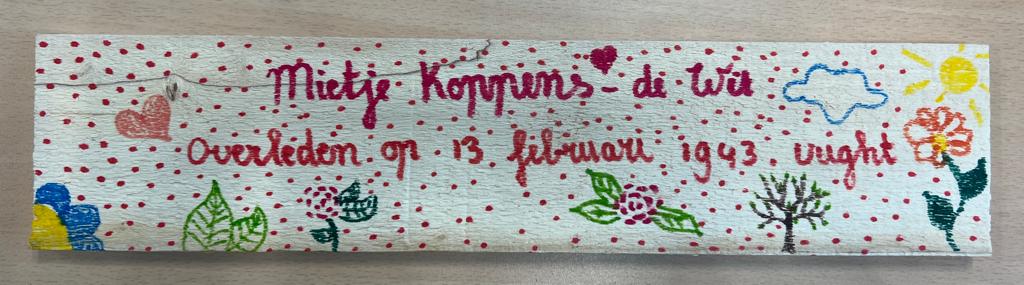 Mietje Koppens - de Wit
Overleden op 13 februari 1943 vught